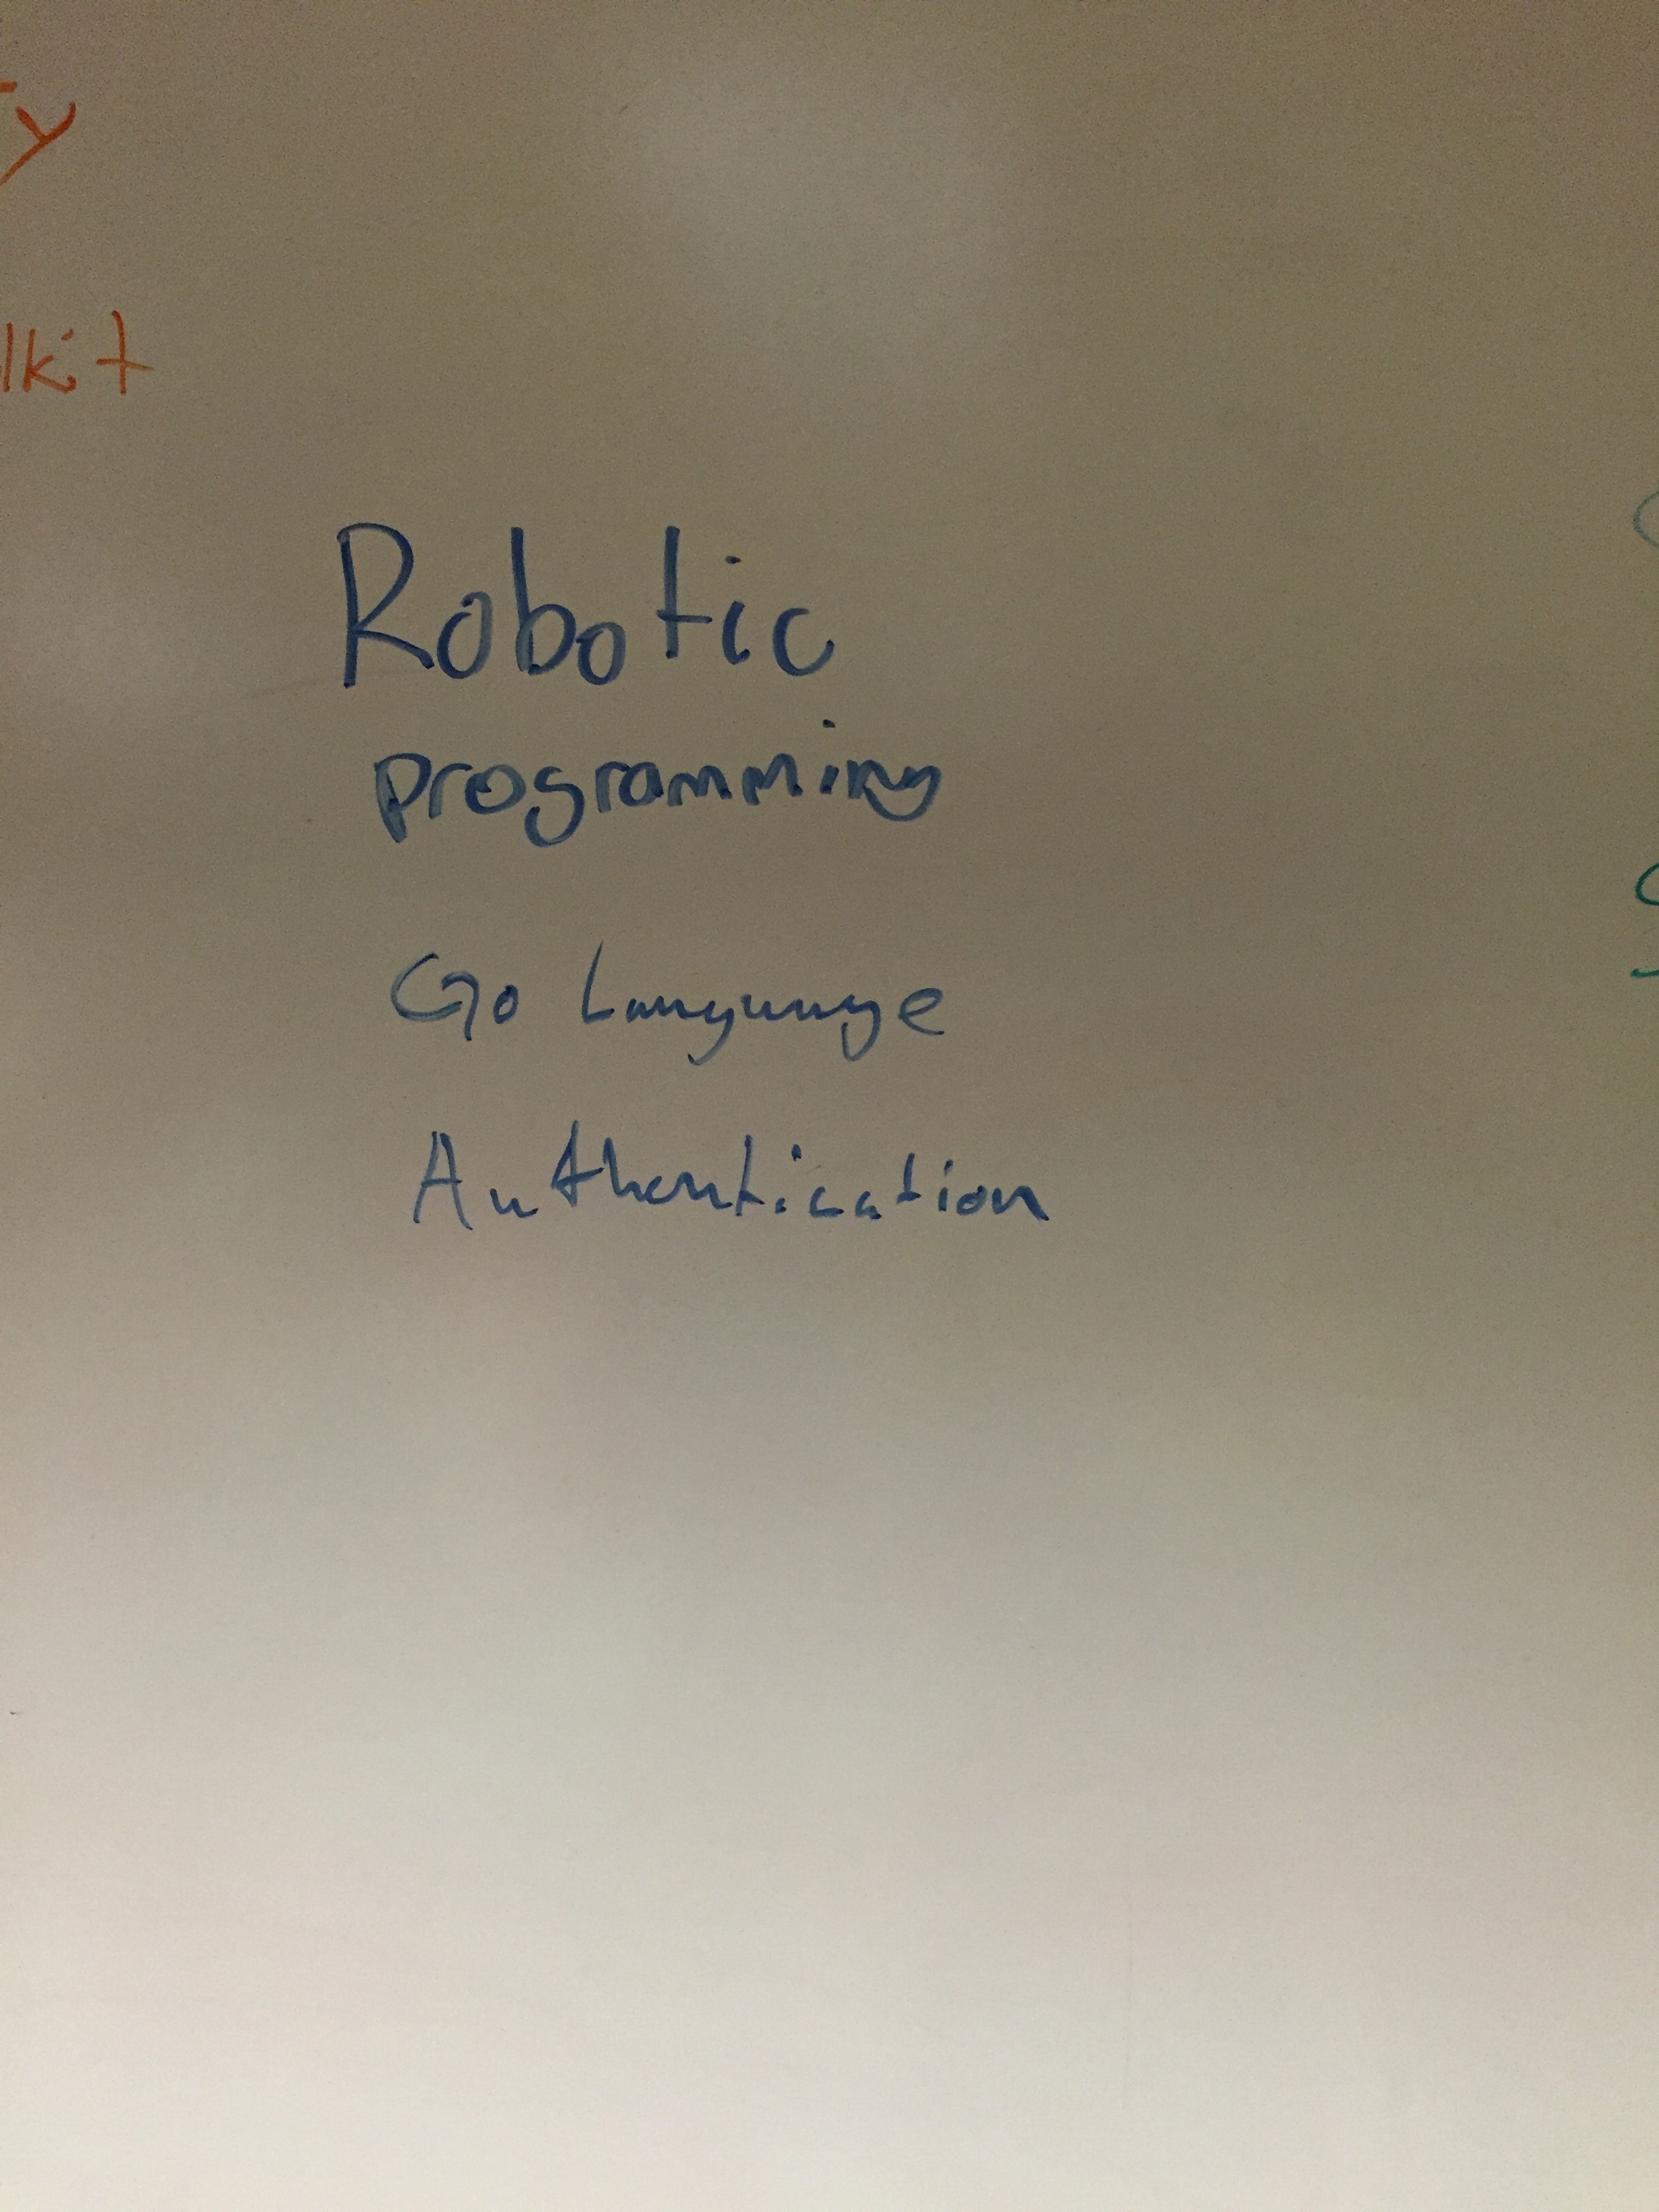 Ty
lkit
Robotic
programming
Go Language
Authentication